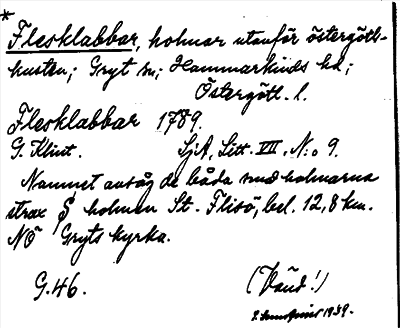 *
Flesklabbar, holmar utanför östergötl-
kusten; Gryt sn; Hammarkinds hd;
Östergötl. l.
Flesklabbar 1789.
G. Klint. SjA, Litt. VII, N:o 9.
Namnet avsåg de båda små holmarna
strax S holmen St. Flisö, bel. 12,8 km.
NÖ Gryts kyrka.
G.46. (Vänd!)
1939.